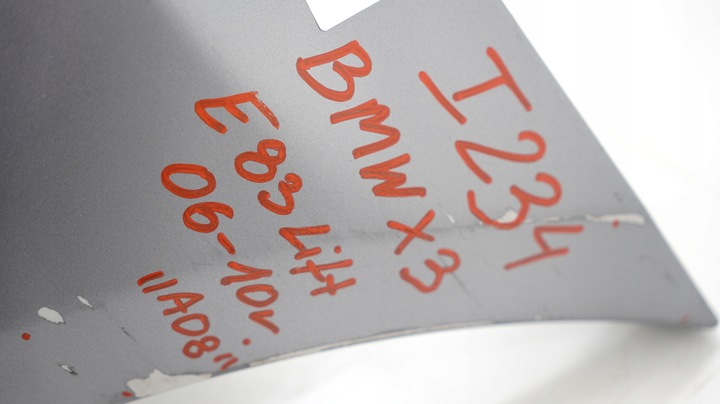 I234
BMW X3
E83 Lift
06-10r
"A08"